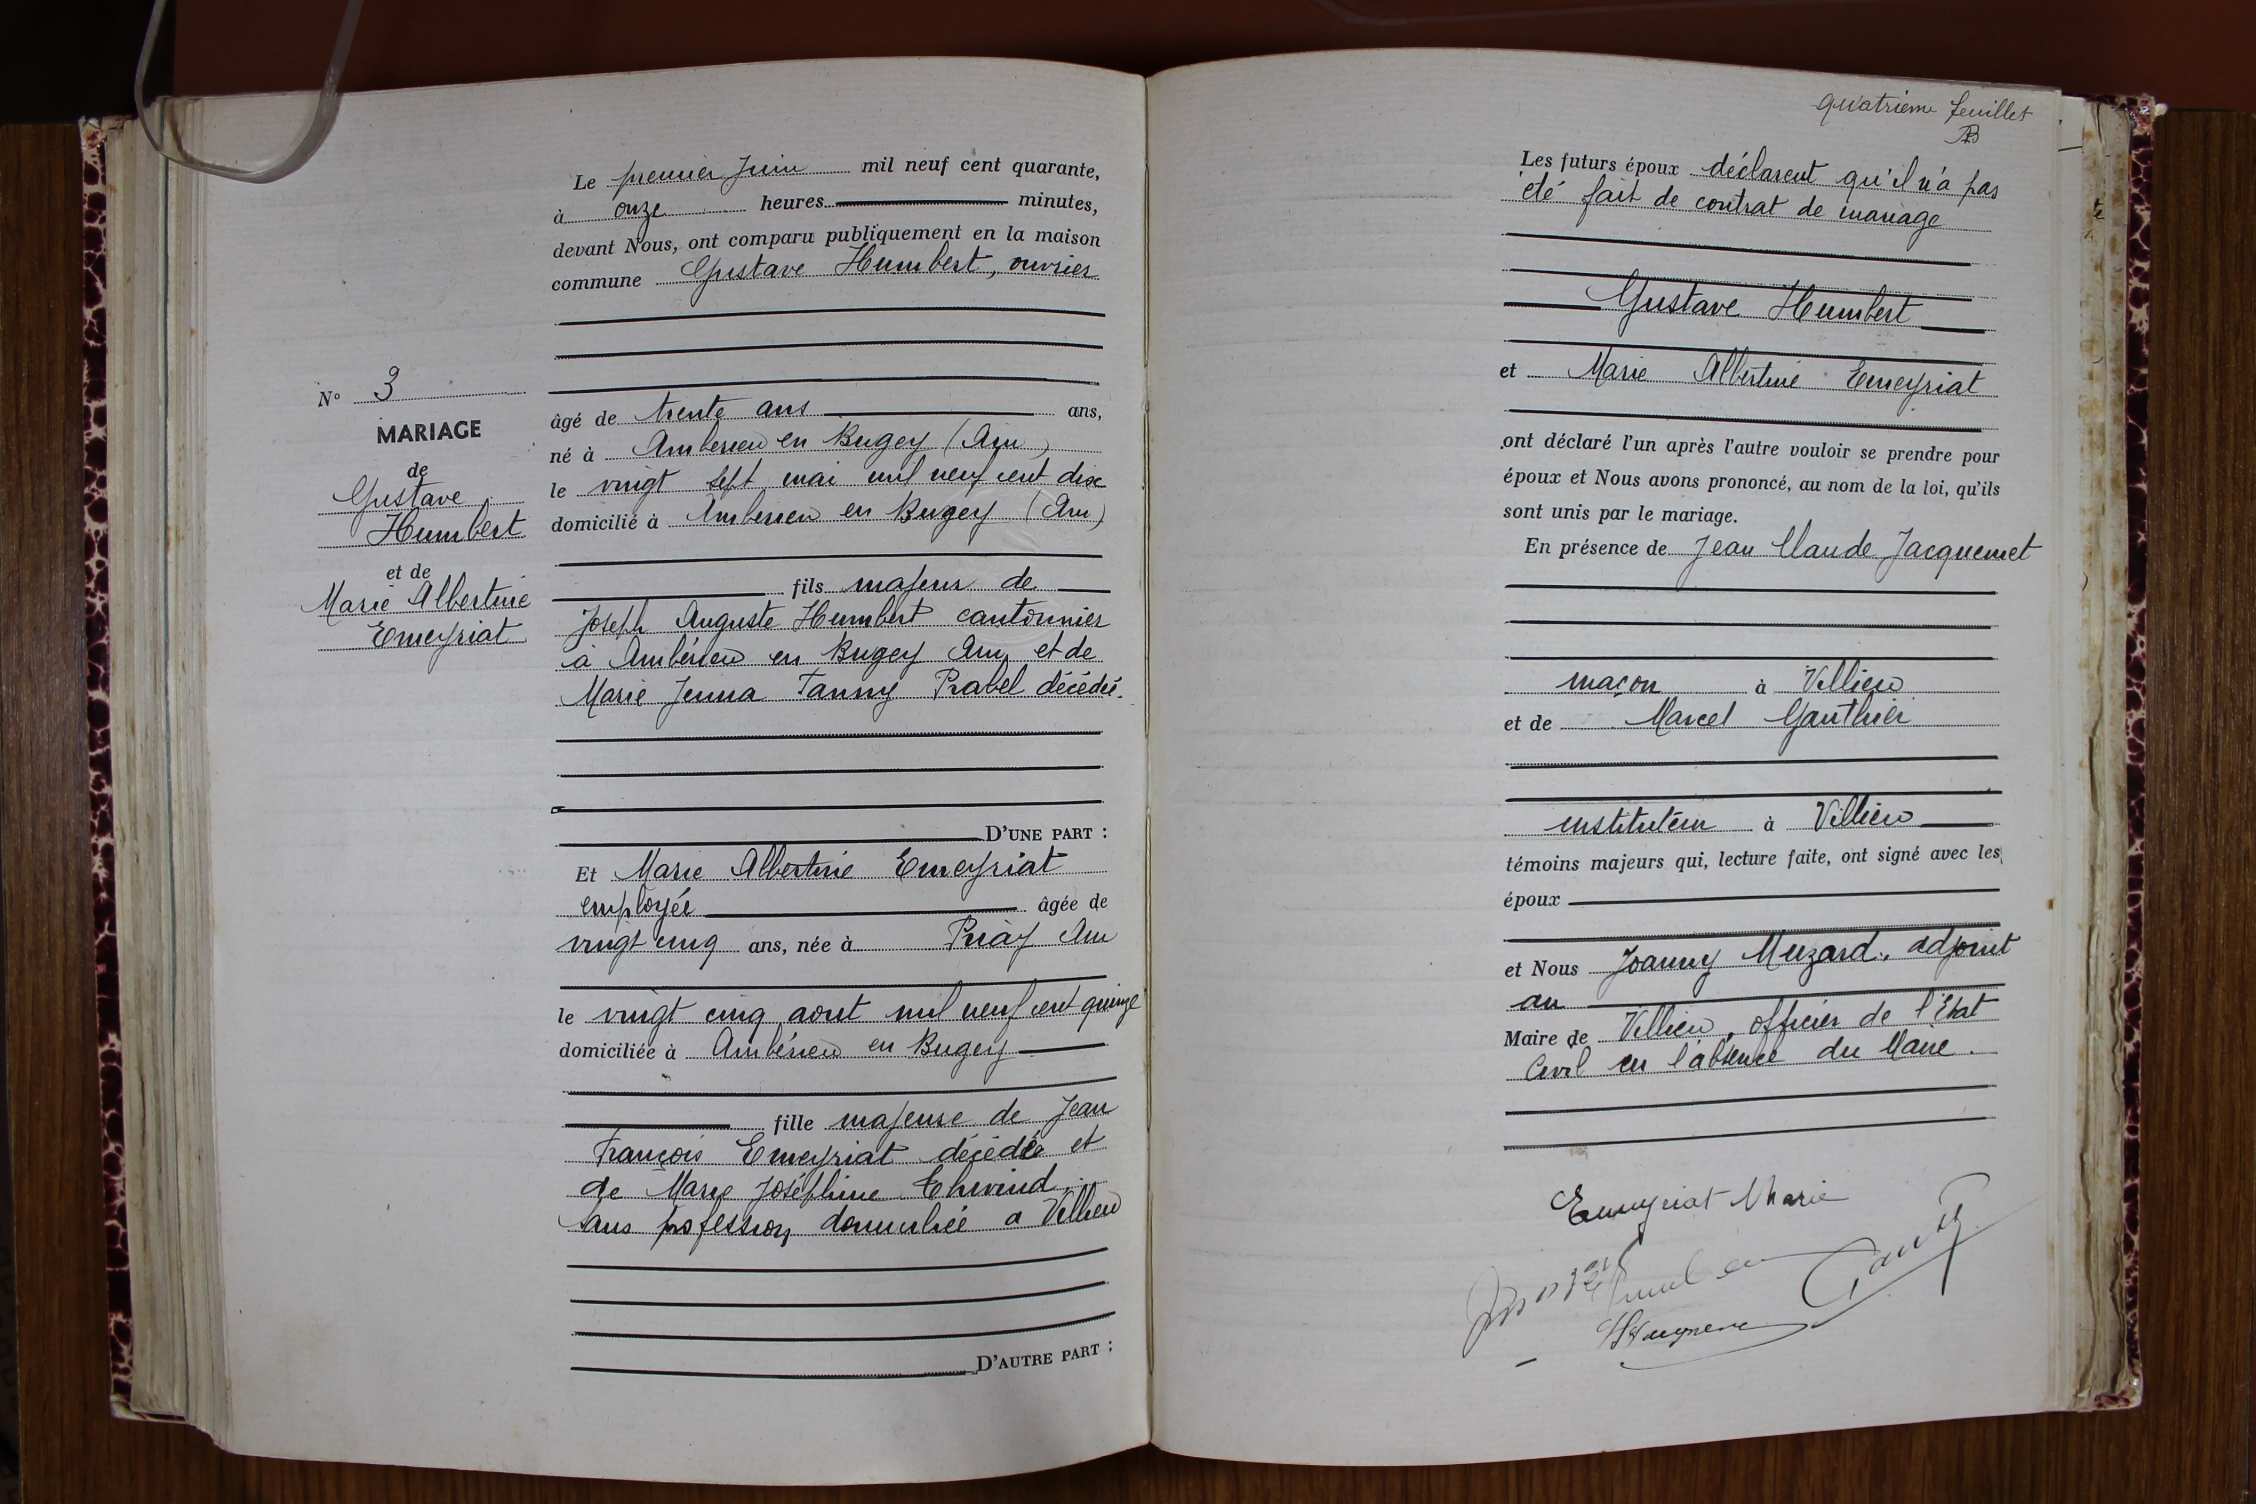 Le premier Juin mil neuf cent quarante,
à onze heures minutes,
devant Nous, ont comparu publiquement en la maison
commune Gustave Humbert, ouvrier
N° 3
MARIAGE
de
Gustave
Humbert
et de
Marie Albertine
Emeyriat
âgé de trente ans ans,
né à Ambérieu en Bugey (Ain)
le vingt sept mai mil neuf cent dix
domicilié à Ambérieu en Bugey (Ain)
fils majeur de
Joseph Auguste Humbert cantonnier
à Ambérieu en Bugey Ain et de
Marie Fanny Prabel décédée.
D'UNE PART :
Et Marie Albertine Emeyriat
employée âgée de
vingt cinq ans, née à Priay Ain
le vingt cinq aout mil neuf cent quinze
domiciliée à Ambérieu en Bugey
fille majeure de Jean
François Emeyriat décédé et
de Marie Joséphine
sans profession, domiciliée a Villieu
D'AUTRE PART :
quatrième feuillet
Les futurs époux déclarent qu'il n'a pas
été fait de contrat de mariage
Gustave Humbert
et Marie Albertine Emeyriat
ont déclaré l'un après l'autre vouloir se prendre pour
époux et Nous avons prononcé, au nom de la loi, qu'ils
sont unis par le mariage.
En présence de Jean Claude Jacquemet
maçon à Villieu
et de Marcel Gauthier
instituteur à Villieu
témoins majeurs qui, lecture faite, ont signé avec les
époux
et Nous Joanny Muzard, adjoint
au
Maire de Villieu, officier de l'Etat
Civil en l'absence du Maire.
Emeyriat Marie